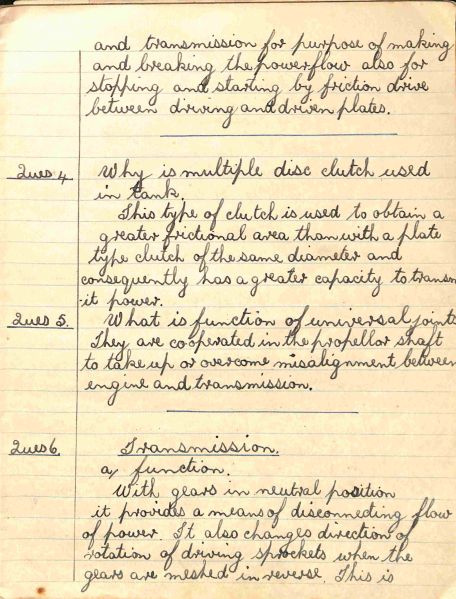 and transmission for purpose of making
and breaking the powerflow also for
stopping and starting by friction drive
between driving and driven plates.
Ques 4 Why is multiple disc clutch used
in tank.
This type of clutch is used to obtain a
greater frictional area than with a plate
type clutch of the same diameter and
consequently has a greater capacity to transm
-it power.
Ques 5. What is function of universal joints
They are cooperated in the propellor shaft
to take up or overcome misalignment between
engine and transmission.
Ques 6. Transmission.
a, function.
With gears in neutral position
it provides a means of disconnecting flow
of power. It also changes direction of
rotation of driving sprockets when the
gears are meshed in reverse. This is